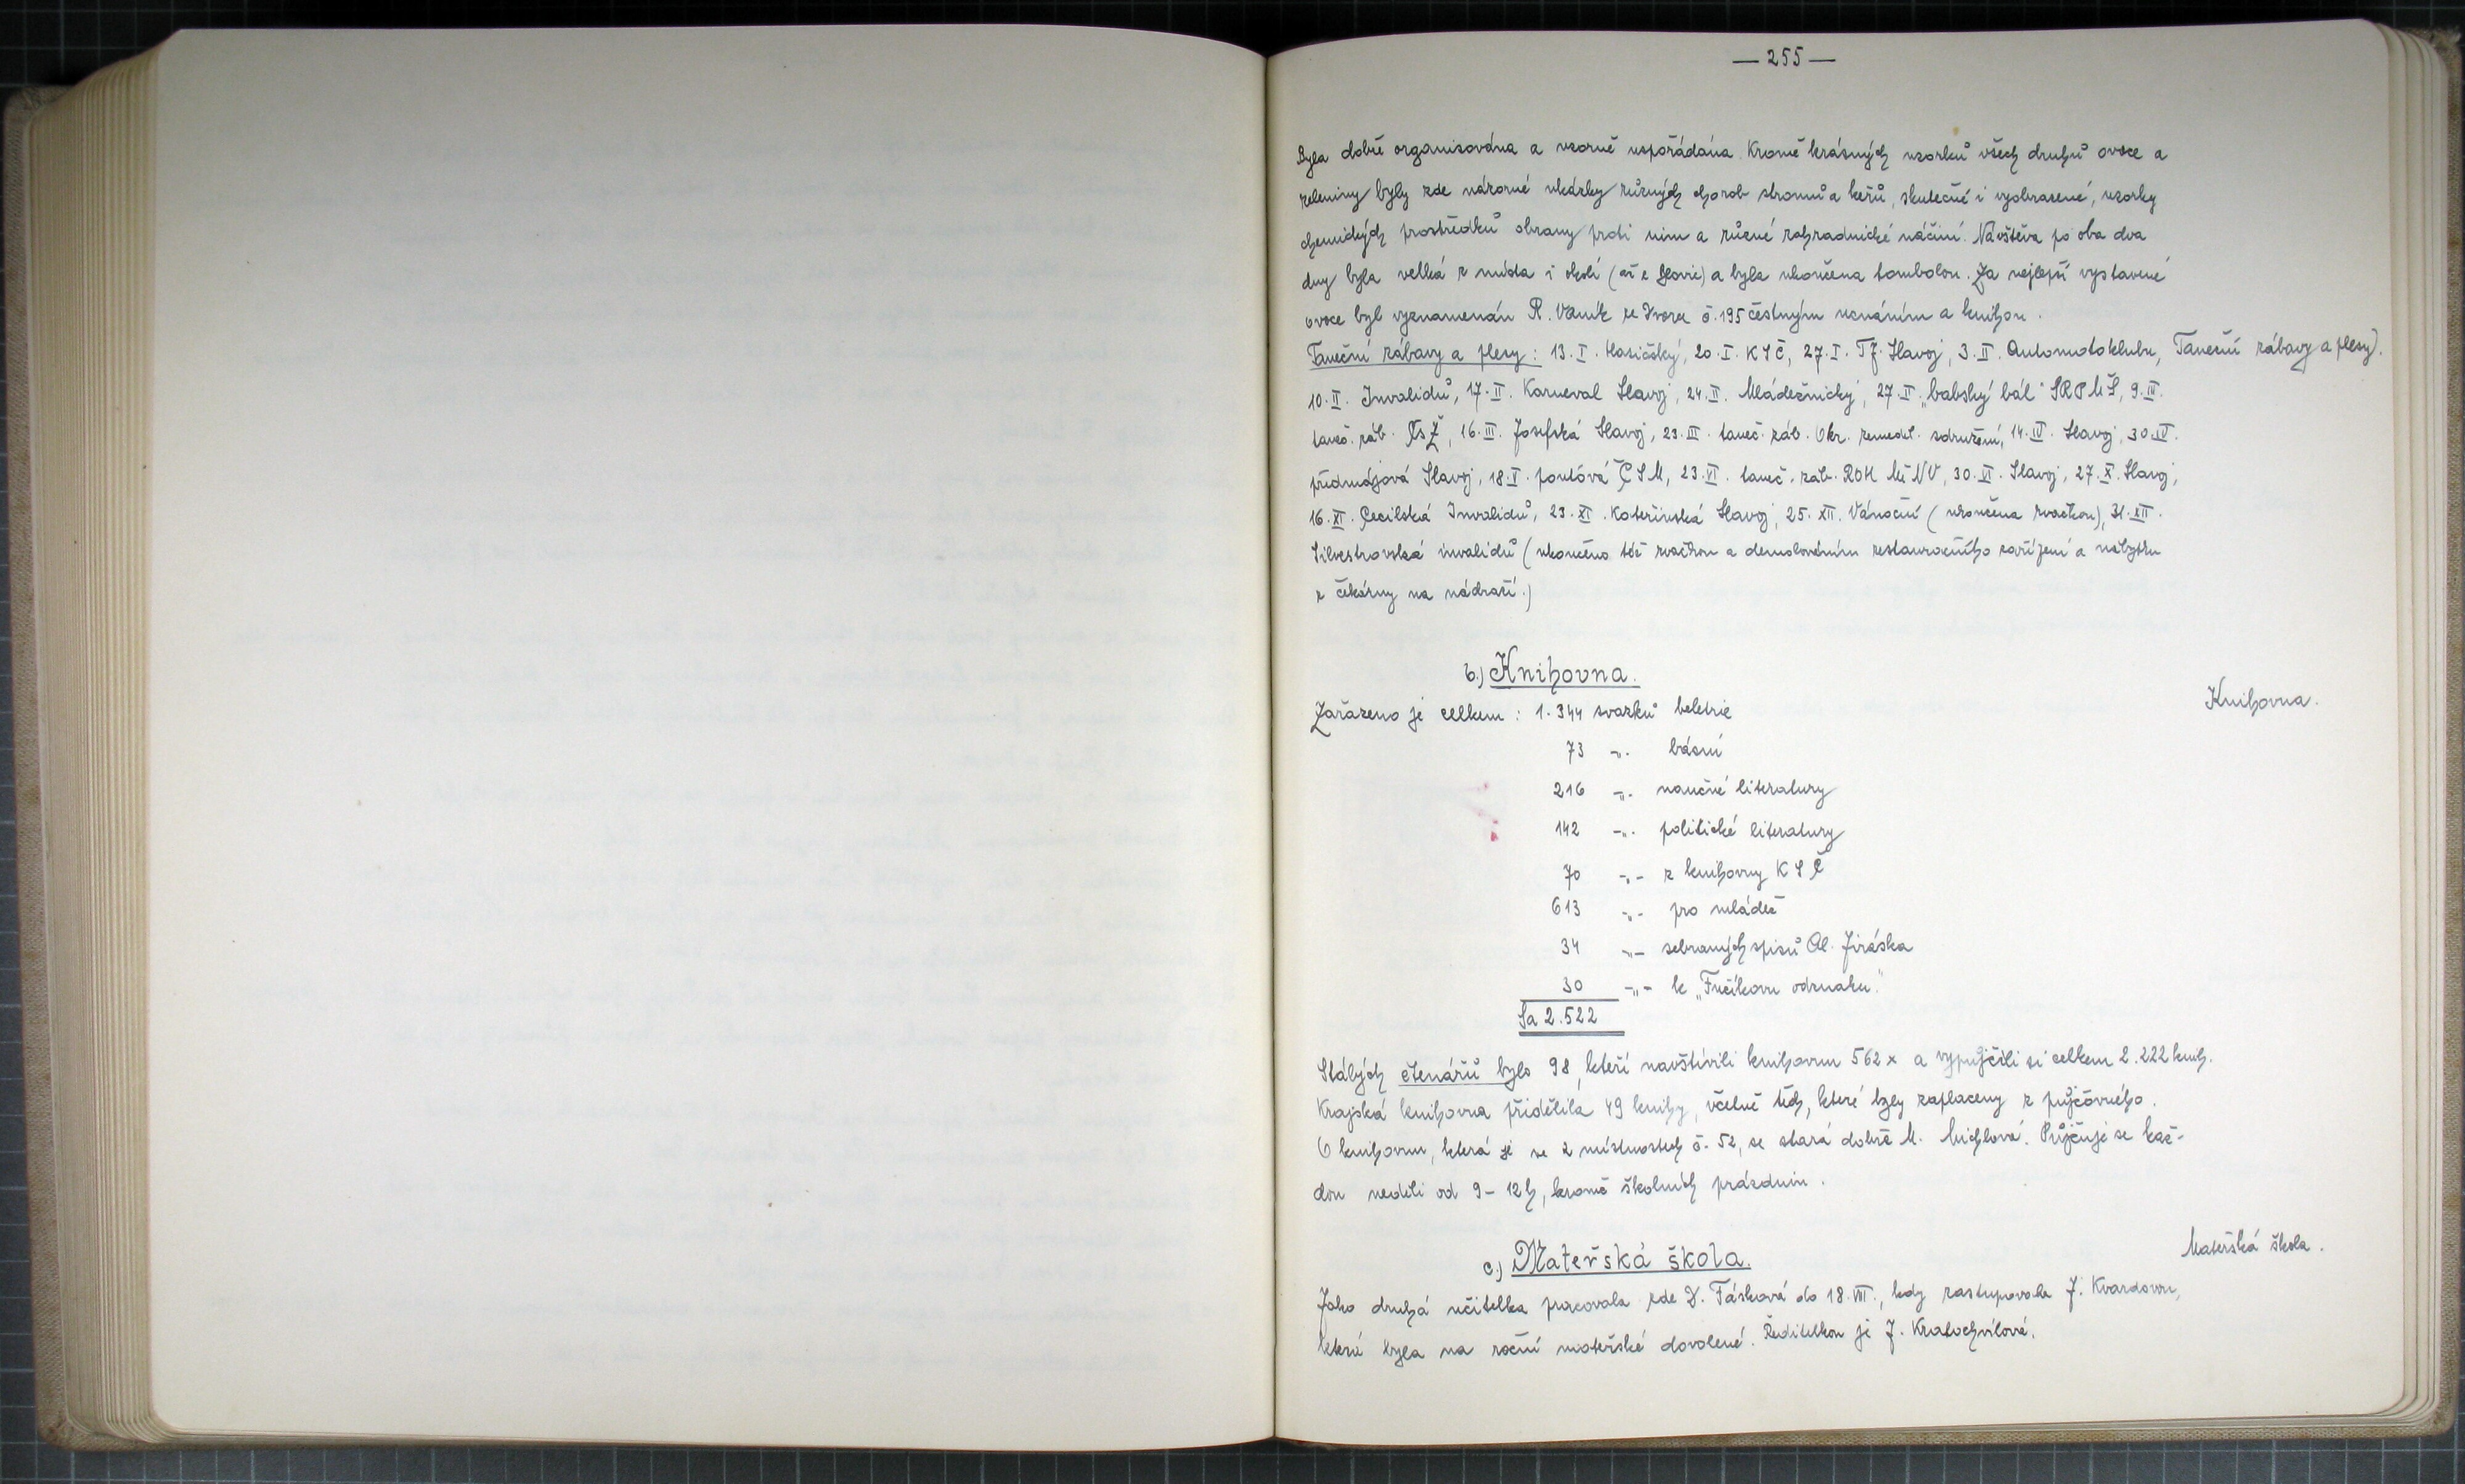 — 255 —
Byla dobře organisována a vzorně uspořádána. Kromě krásných vzorků všech druhů ovoce a
zeleniny byly zde názorné ukázky různých chorob stromů a keřů, skutečné i vyobrazené, vzorky
chemických prostředků obrany proti nim a různé zahradnické náčiní. Návštěva po oba dva
dny byla velká z města i okolí (až z ) a byla ukončena tombolou. Za nejlepší vystavené
ovoce byl vyznamenán R. Vaník ze Dvorce č. 195 čestným uznáním a knihou.
Taneční zábavy a plesy: 13. I. Hasičský, 20. I. KSČ, 27. I. TJ. Slavoj, 3. II. Automotoklubu,
Taneční zábavy a plesy).
10. II. Invalidů, 17. II. Karneval Slavoj, 24. II. Mládežnický, 27. II. „babský bál" SRPMŠ, 9. III.
taneč. záb. ČsŽ, 16. III. Josefská Slavoj, 23. III. taneč. záb. Okr. zemeděl. sdružení, 14. IV. Slavoj, 30. IV.
předmájová Slavoj, 18. V. pouťová ČSM, 23. VI. taneč. záb. ROH MěNV, 30. VI. Slavoj, 27. X. Slavoj,
16. XI. Cecilská Invalidů, 23. XI. Kateřinská Slavoj, 25. XII. Vánoční (ukončena rvačkou), 31. XII.
Silvestrovská invalidů (ukončeno též rvačkou a demolováním restauračního zařízení a nábytku
z čekárny na nádraží.)
b.) Knihovna.
Knihovna.
Zařazeno je celkem: 1.344 svazků beletrie
73 -„- básní
216 -„- naučné literatury
142 -„- politické literatury
70 -„- z knihovny KSČ
613 -„- pro mládež
34 -„- sebraných spisů Al. Jiráska
30 -„- k „Fučíkovu odznaku."
Sa 2.522
Stálých čtenářů bylo 98, kteří navštívili knihovnu 562 x a vypůjčili si celkem 2.222 knih.
Krajská knihovna přidělila 49 knihy, včetně těch, které byly zaplaceny z půjčovného.
O knihovnu, která je ve 2 místnostech č. 52, se stará dobře M. Michlová. Půjčuje se kaž-
dou neděli od 9 - 12 h, kromě školních prázdnin.
c.) Mateřská škola.
Mateřská škola.
Jako druhá učitelka pracovala zde D. Fásková do 18. VII., kdy zastupovala J. Kvardovou,
která byla na roční mateřské dovolené. Ředitelkou je J. Kratochvílová.